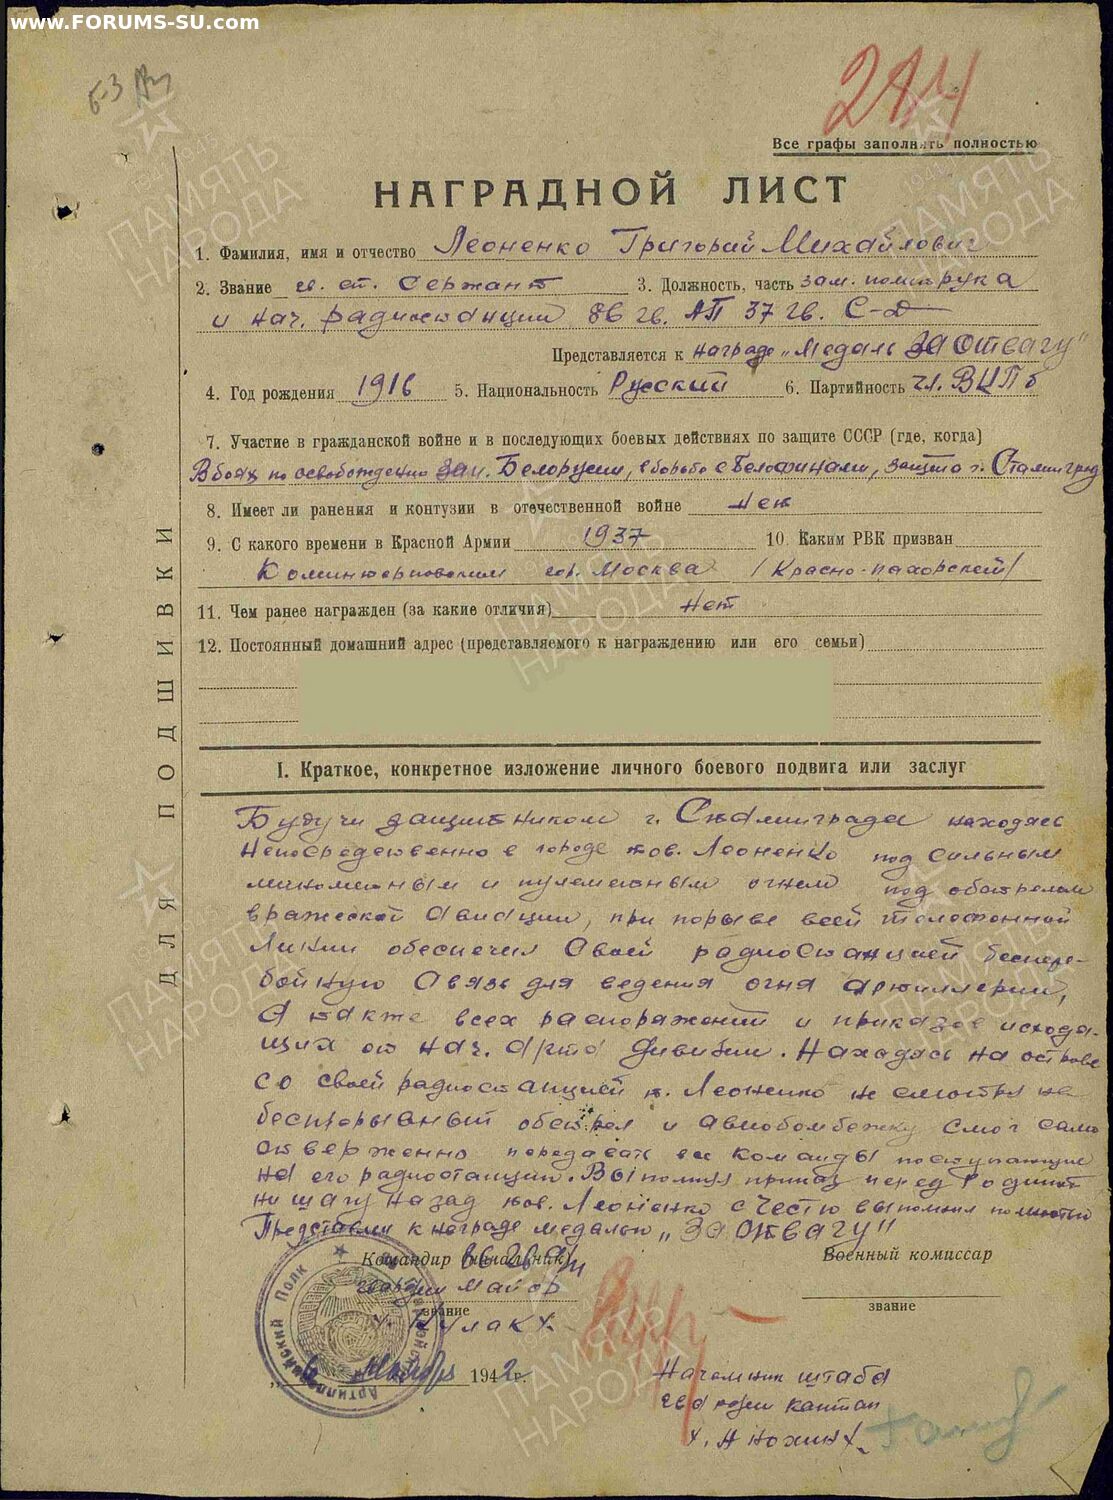 www.FORUMS-SU.com
Б-3
214
Все графы заполнять полностью
НАГРАДНОЙ ЛИСТ
1. Фамилия, имя и отчество Леоненко Григорий Михайлович
2. Звание гв. ст. Сержант 3. Должность, часть зам. политрука
и нач. радиостанции 86 гв. АП 37 гв. С-Д
Представляется к награде „Медаль За Отвагу"
4. Год рождения 1916 5. Национальность Русский 6. Партийность чл. ВКПб
7. Участие в гражданской войне и в последующих боевых действиях по защите СССР (где, когда)
В боях по освобождению зап. Белорусии, в борьбе с Белофинами, защита г. Сталинград
8. Имеет ли ранения и контузии в отечественной войне Нет
9. С какого времени в Красной Армии 1937 10. Каким РВК призван
Коминтерновским гор. Москва /Красно-пахорский/
11. Чем ранее награжден (за какие отличия) Нет
12. Постоянный домашний адрес (представляемого к награждению или его семьи)
ДЛЯ ПОДШИВКИ
I. Краткое, конкретное изложение личного боевого подвига или заслуг
Будучи защитником г. Сталинграда находясь
Непосредственно в городе тов. Леоненко под сильным
минометным и пулеметным огнем под обстрелом
вражеской авиации, при порыве всей телефонной
Линии обеспечил Своей радиостанцией беспере-
бойную Связь для ведения огня артиллерии,
А также всех распоряжений и приказов исходя-
щих от нач. арта дивизии. Находясь на острове
со своей радиостанцией т. Леоненко не смотря на
беспрорывный обстрел и авиобомбежку Смог само
отверженно передавать все команды поступающие
на его радиостанцию. Выполняя приказ перед Родиной
ни шагу назад тов. Леоненко с честью выполнил полностью
Представлен к награде медалью „ЗА Отвагу"
Командир (начальник) 86 гв АП
гвардии майор
звание
Военный комиссар
звание
6 Ноября 1942 г.
Артиллерийский Полк
Начальник штаба
гвардии Капитан
ПАМЯТЬ НАРОДА